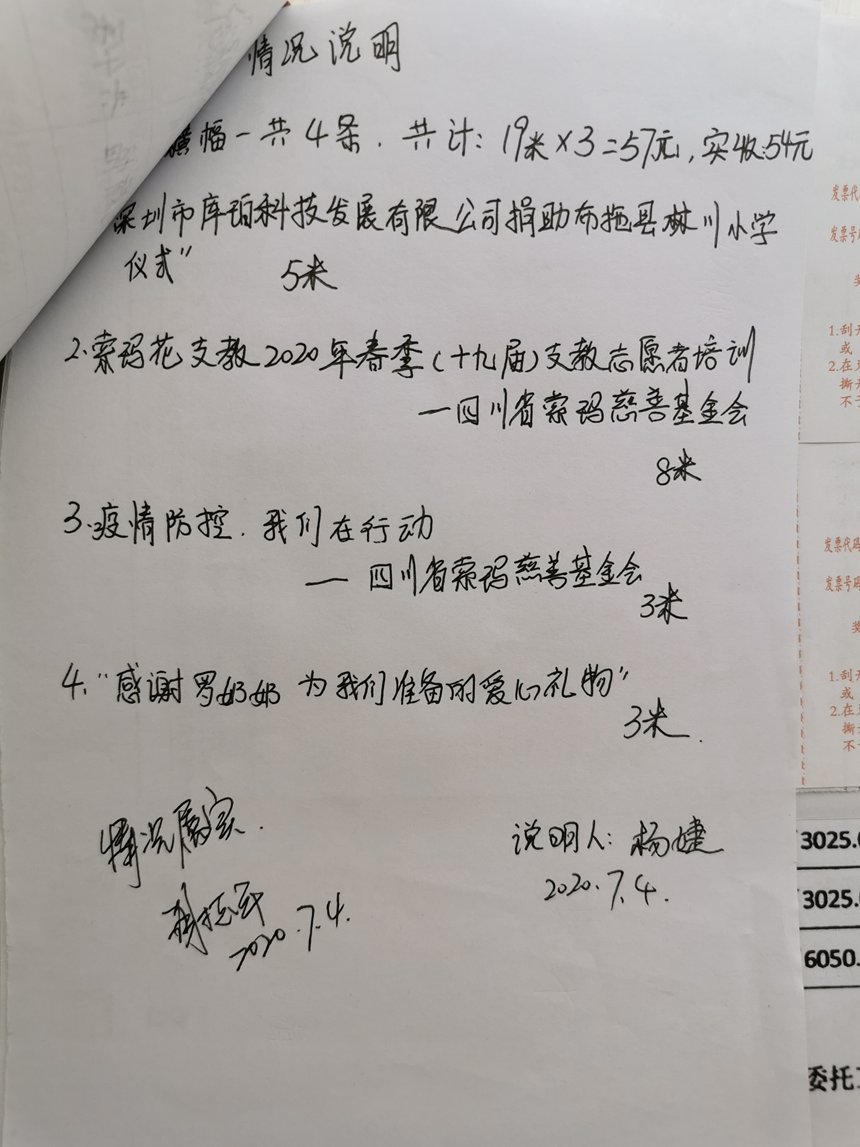 情况说明
横幅一共4条.共计:19米×3=57元,实收:54元
深圳市库珀科技发展有限公司捐助布拖县林川小学
仪式"
5米
2、索玛花支教2020年春季(十九届)支教志愿者培训
—四川省索玛慈善基金会
8米
3、疫情防控.我们在行动
— 四川省索玛慈善基金会
3米
4、"感谢罗奶奶 为我们准备的爱心礼物"
3米.
情况属实.
说明人:杨婕
2020.7.4.
2020.7.4.
发票代
发票号
1.刮开
或
2.在
撕
不
发票代码
发票号码
1.刮开
或
2.在
撕
不
3025.
3025.
6050.
委托